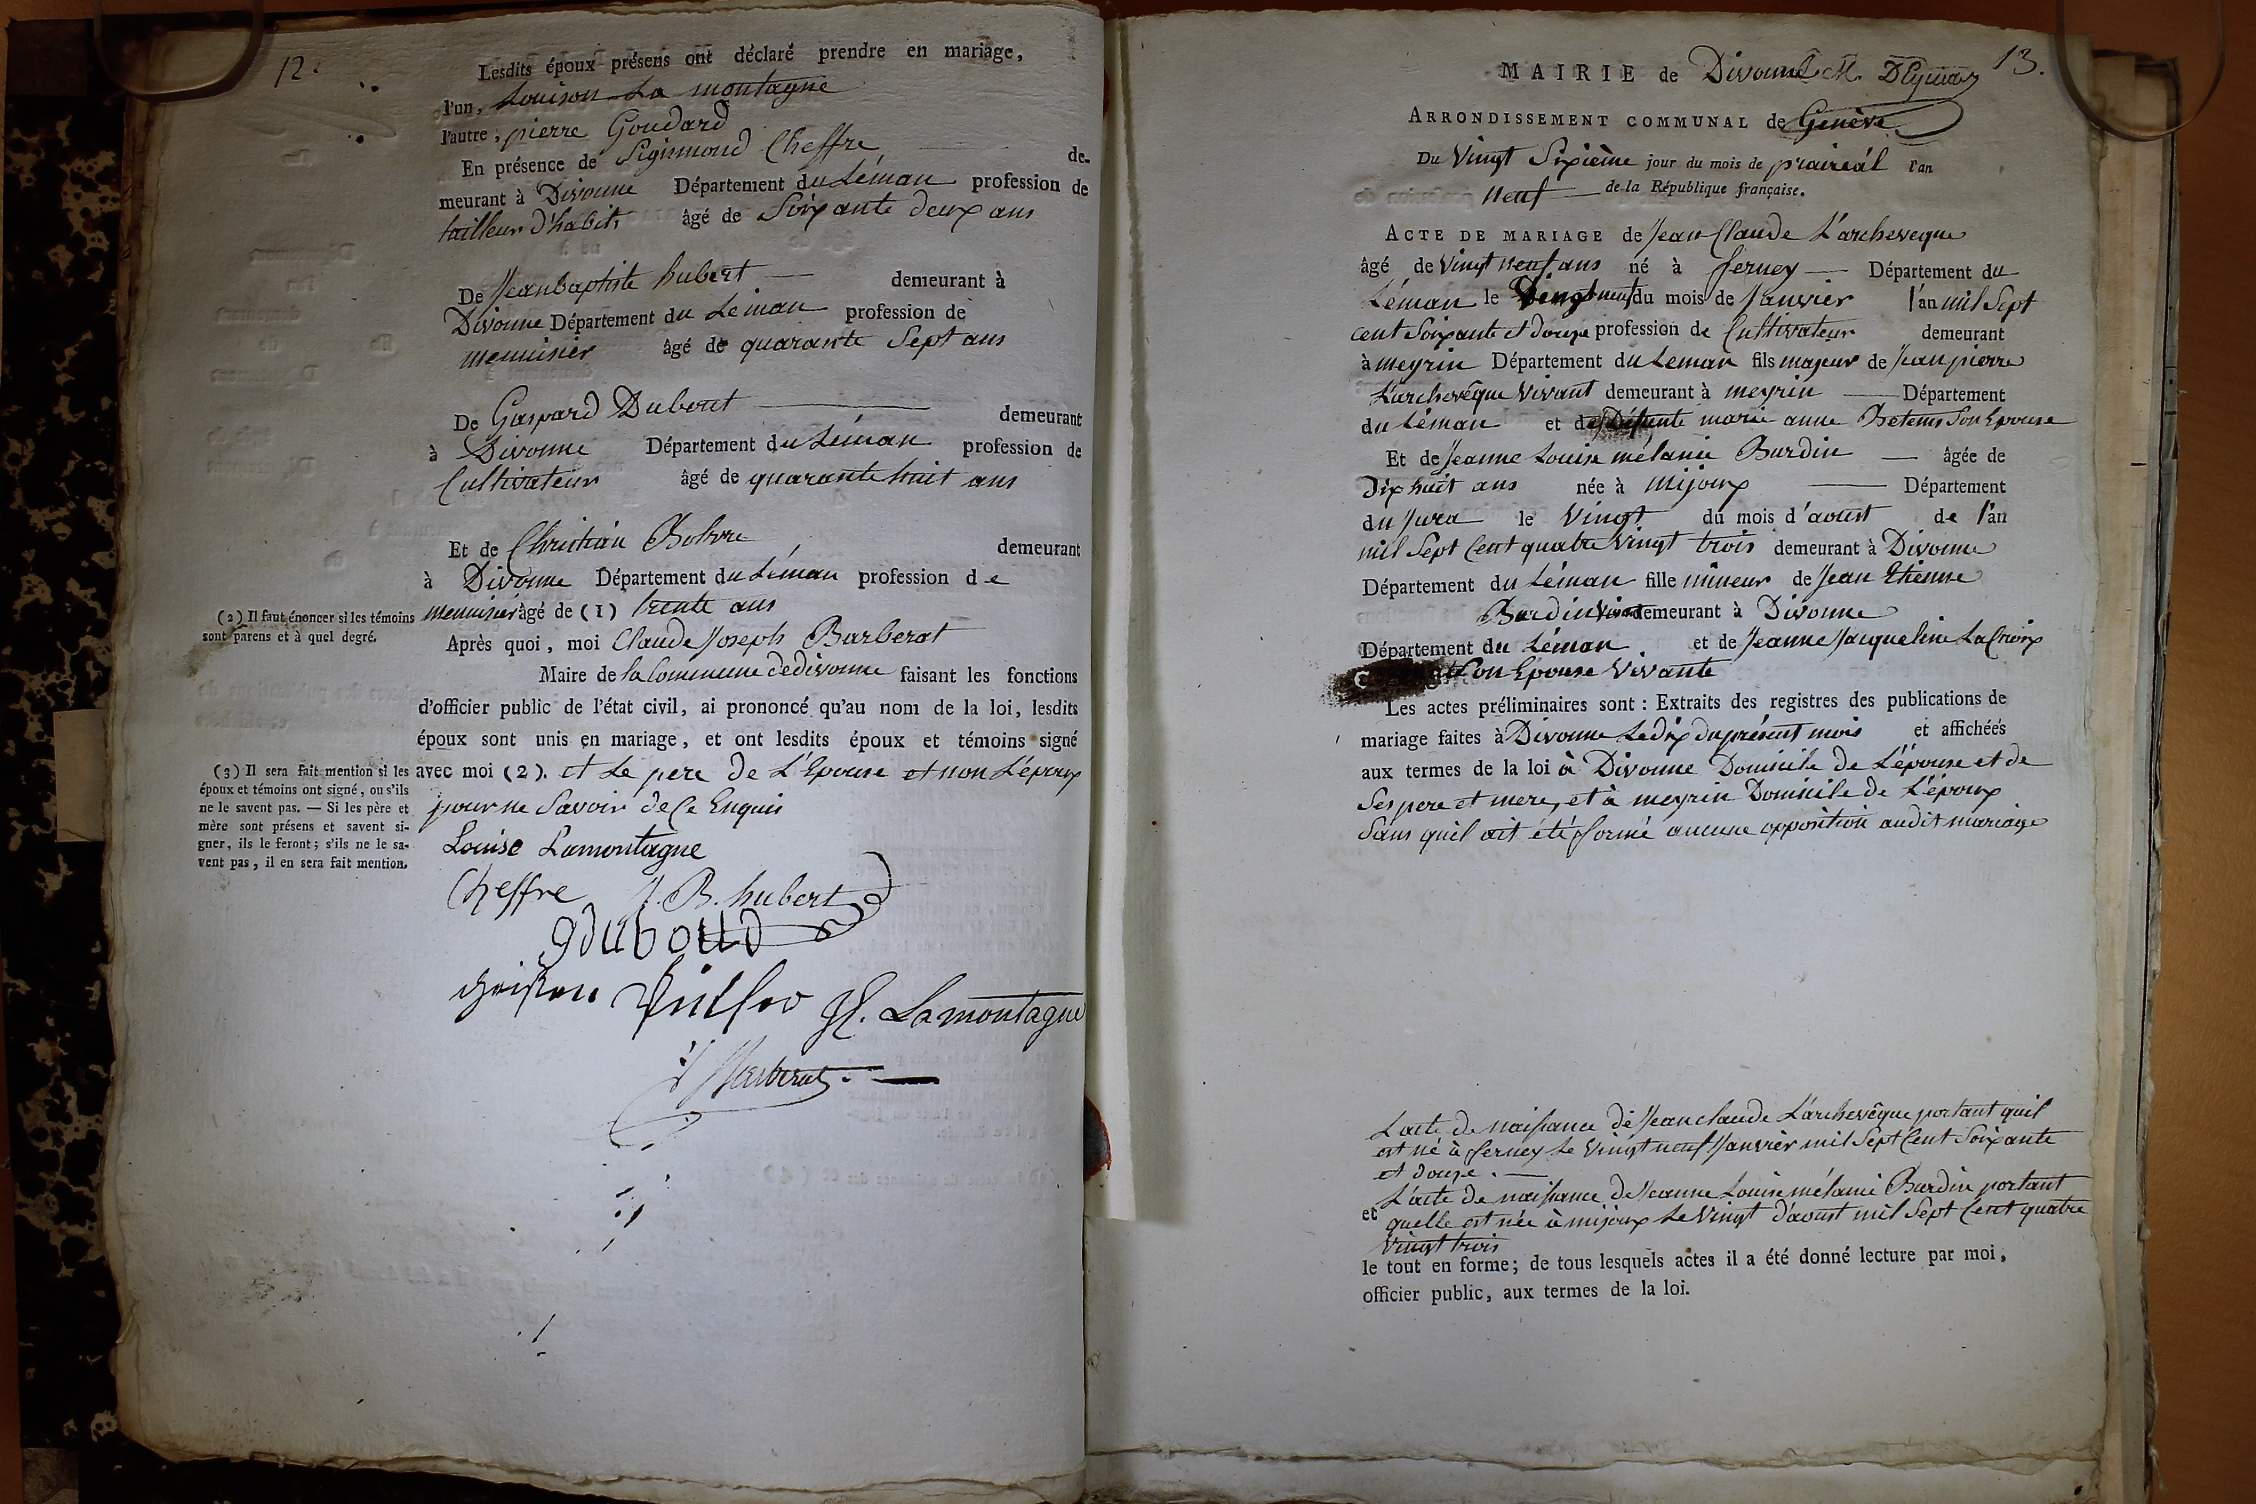 12.
Lesdits époux présens ont déclaré prendre en mariage,
l'un, Louison La montagne
l'autre, pierre Goudard
En présence de Sigismond Cheffre de-
meurant à Divonne Département du Léman profession de
tailleur d'habits âgé de Soixante deux ans
De Jeanbaptiste hubert demeurant à
Divonne Département du Léman profession de
menuisier âgé de quarante Sept ans
De Gaspard Dubout demeurant
à Divonne Département du Léman profession de
Cultivateur âgé de quarante huit ans
Et de Christian demeurant
à Divonne Département du Léman profession de
menuisier âgé de (1) trente ans
(2) Il faut énoncer si les témoins
sont parens et à quel degré.
Après quoi, moi Claude Joseph Barberat
Maire de la Commune de divonne faisant les fonctions
d'officier public de l'état civil, ai prononcé qu'au nom de la loi, lesdits
époux sont unis en mariage, et ont lesdits époux et témoins signé
avec moi (2). et Le pere de L'Epouse et non L'époux
pour ne Savoir de Ce Enquis
(3) Il sera fait mention si les
époux et témoins ont signé, ou s'ils
ne le savent pas. — Si les père et
mère sont présens et savent si-
gner, ils le feront; s'ils ne le sa-
vent pas, il en sera fait mention.
Louise Lamontagne
Cheffre J. B. hubert
gduboud
Lamontagne
Barberat
13.
MAIRIE de Divonne
ARRONDISSEMENT COMMUNAL de Genève
Du Vingt Sixième jour du mois de prairéal l'an
neuf de la République française.
ACTE DE MARIAGE de Jean Claude L'archeveque
âgé de Vingt neuf ans né à ferney Département du
Léman le Vingt neuf du mois de Janvier l'an mil Sept
cent Soixante et douze profession de Cultivateur demeurant
à meyrin Département du Leman fils majeur de Jean pierre
L'archevêque Vivant demeurant à meyrin Département
du Léman et de Défunte marie anne Betems Son Epouse
Et de Jeanne Louise mélanie Burdin âgée de
Dix huit ans née à mijoux Département
du Jura le Vingt du mois d'aoust de l'an
mil Sept Cent quatre Vingt trois demeurant à Divonne
Département du Léman fille mineur de Jean Etienne
Burdin Vivant demeurant à Divonne
Département du Léman et de Jeanne Jacqueline La Croix
Son Epouse Vivante
Les actes préliminaires sont : Extraits des registres des publications de
mariage faites à Divonne Le dix du présent mois et affichéés
aux termes de la loi à Divonne Domicile de L'épouse et de
Ses pere et mere, et à meyrin Domicile de L'époux
Sans quil ait été formé aucune opposition audit mariage
L'acte de naissance de Jean claude L'archevêque portant quil
est né à ferney Le Vingt neuf Janvier mil Sept Cent Soixante
et douze.
L'acte de naissance de Jeanne Louise mélanie Burdin portant
et quelle est née à mijoux Le Vingt d'aoust mil Sept Cent quatre
Vingt trois
le tout en forme; de tous lesquels actes il a été donné lecture par moi,
officier public, aux termes de la loi.